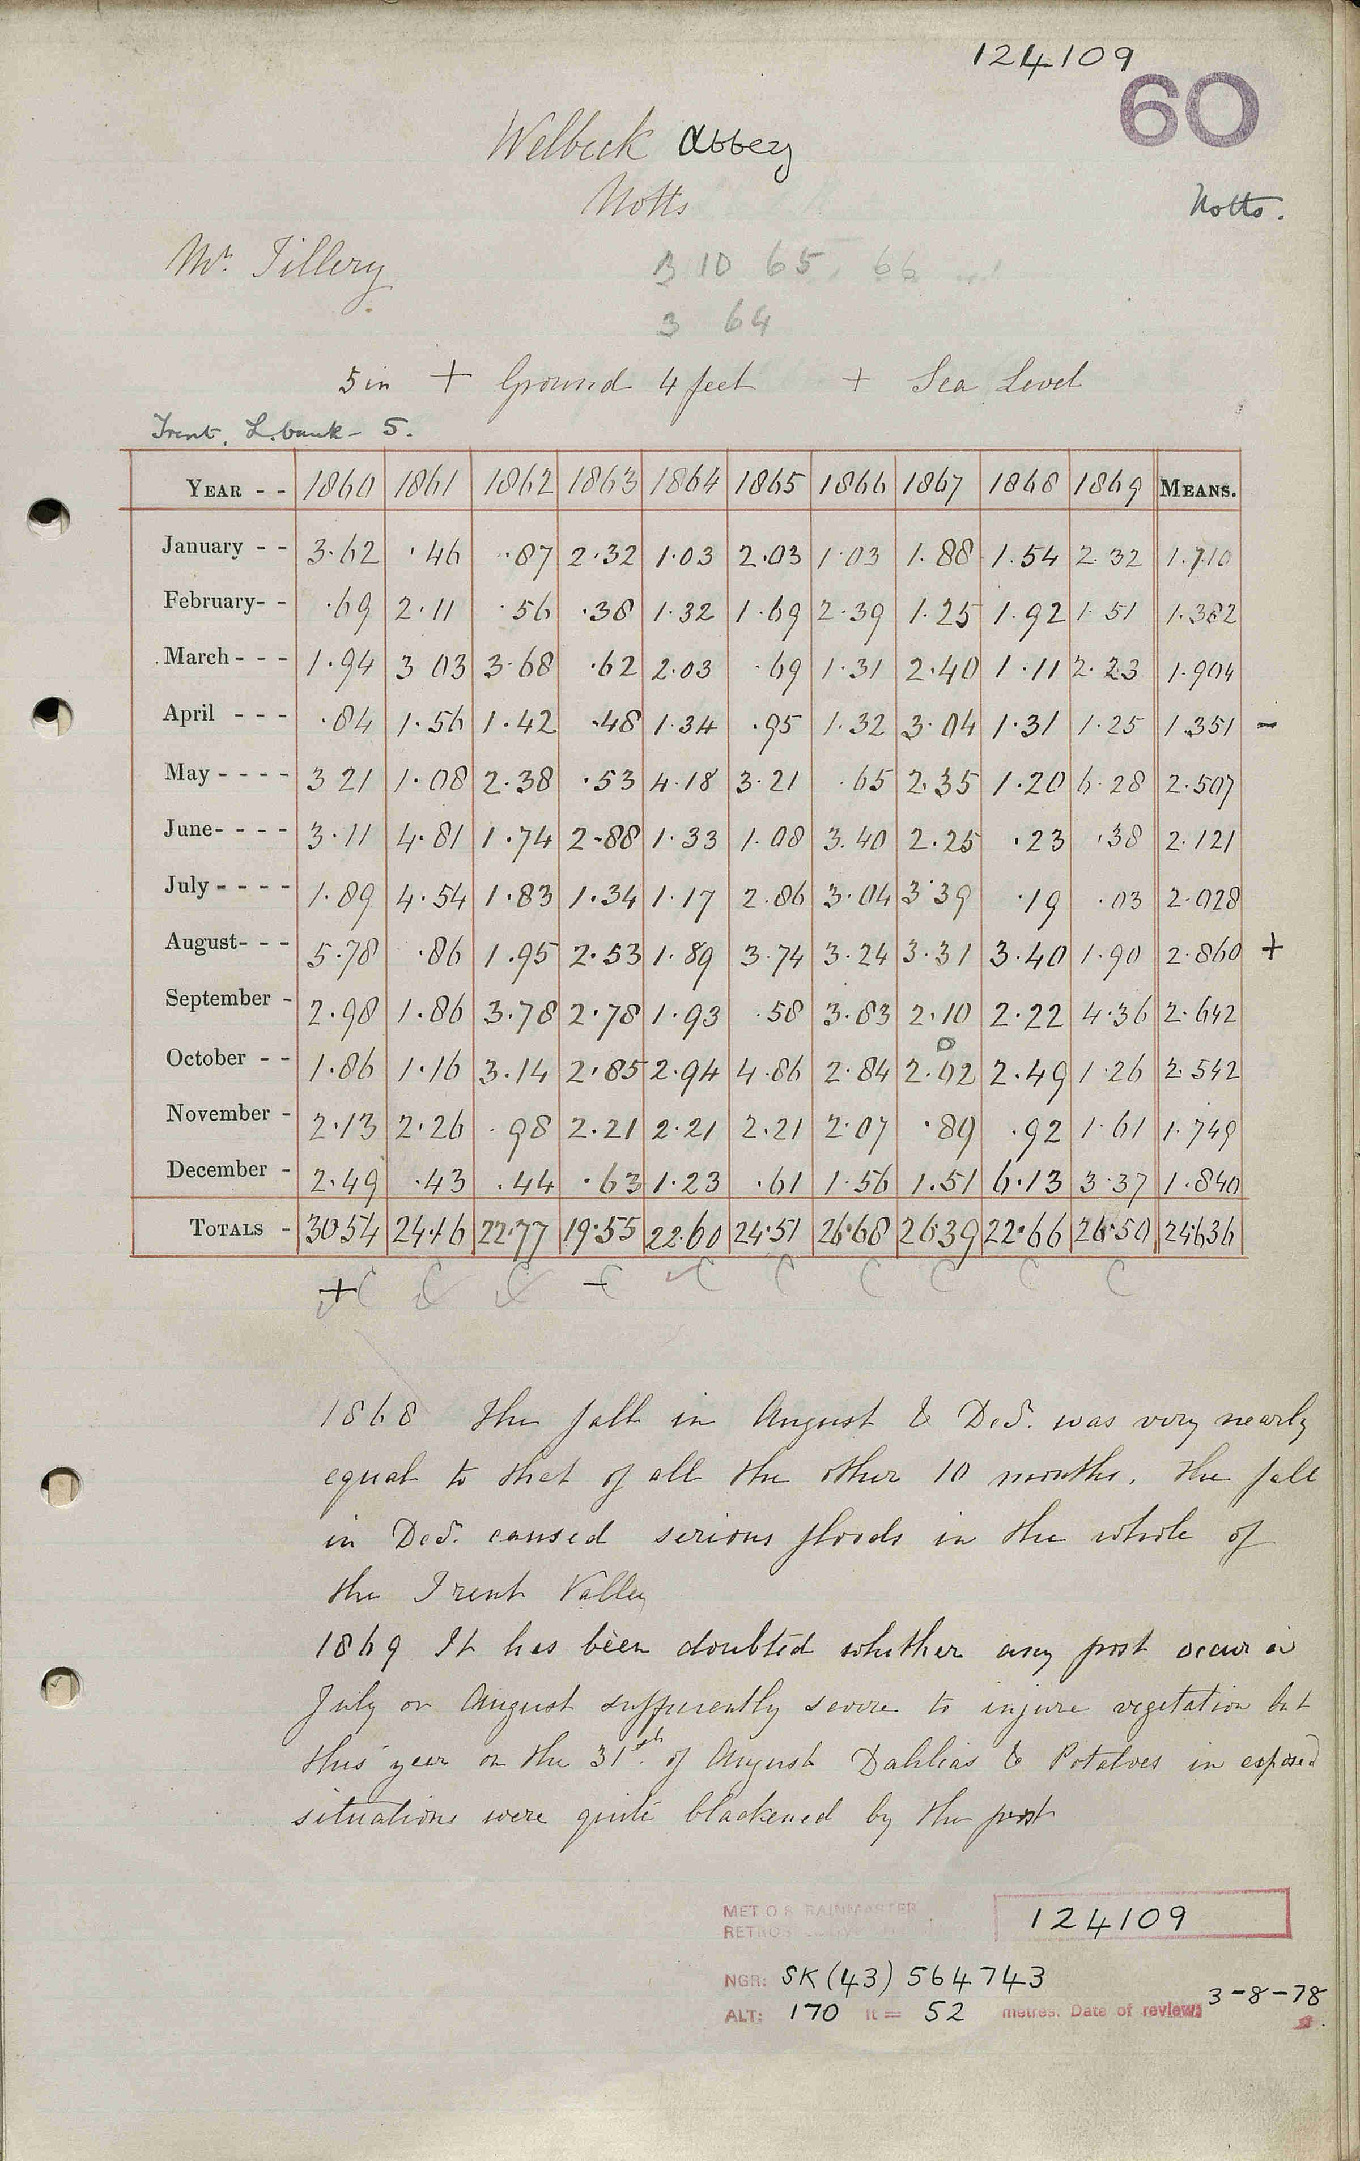 124109
60
Welbeck Abbey
Notts
Notts.
Mr. Tillery
3 10 65. 66
3 64
5 in + Ground 4 feet + Sea Level
Trent. L. bank - 5.
YEAR - - 1860 1861 1862 1863 1864 1865 1866 1867 1868 1869 MEANS.
January - - 3.62 .46 .87 2.32 1.03 2.03 1.03 1.88 1.54 2.32 1.710
February - - .69 2.11 .56 .38 1.32 1.69 2.39 1.25 1.92 1.51 1.382
March - - - 1.94 3 03 3.68 .62 2.03 .69 1.31 2.40 1.11 2.23 1.904
April - - - .84 1.56 1.42 .48 1.34 .95 1.32 3.04 1.31 1.25 1.351 -
May - - - - 3 21 1.08 2.38 .53 4.18 3.21 .65 2.35 1.20 6.28 2.507
June - - - - 3.11 4.81 1.74 2.88 1.33 1.08 3.40 2.25 .23 .38 2.121
July - - - - 1.89 4.54 1.83 1.34 1.17 2.86 3.04 3.39 .19 .03 2.028
August - - - 5.78 .86 1.95 2.53 1.89 3.74 3.24 3.31 3.40 1.90 2.860 +
September - 2.98 1.86 3.78 2.78 1.93 .58 3.83 2.10 2.22 4.36 2.642
October - - 1.86 1.16 3.14 2.85 2.94 4.86 2.84 2.02 2.49 1.26 2.542
November - 2.13 2.26 .98 2.21 2.21 2.21 2.07 .89 .92 1.61 1.749
December - 2.49 .43 .44 .63 1.23 .61 1.56 1.51 6.13 3.37 1.840
TOTALS - 30.54 24.16 22.77 19.55 22.60 24.51 26.68 26.39 22.66 26.50 24.636
+ C C C - C C C C C C C
1868 The fall in August & Dec. was very nearly
equal to that of all the other 10 months. The fall
in Dec. caused serious floods in the whole of
the Trent Valley
1869 It has been doubted whether any frost occur in
July or August sufficiently severe to injure vegetation but
this year on the 31st. of August Dahlias & Potatoes in exposed
situations were quite blackened by the frost
MET O 8 RAINMASTER
124109
NGR: SK (43) 564743
ALT: 170 ft = 52 metres. Date of review: 3-8-78